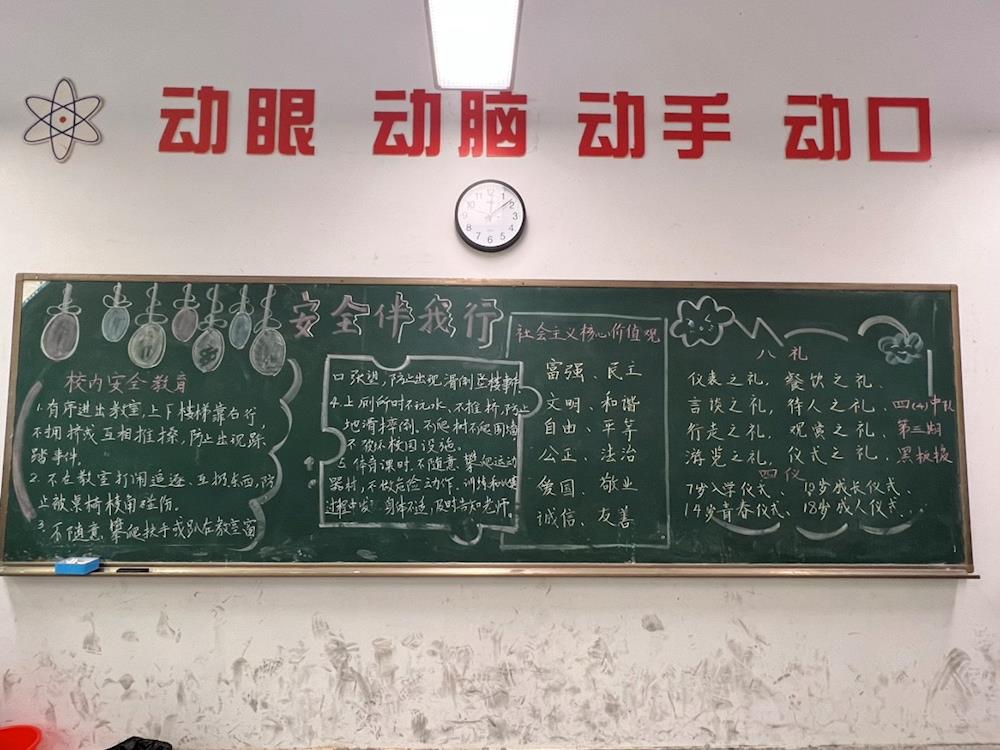 动眼 动脑 动手 动口
12 1 2 3 4 5 6 7 8 9 10 11
安全伴我行
校内安全教育
1.有序进出教室,上下楼梯靠右行,
不拥挤或互相推搡,防止出现踩
踏事件。
2.不在教室打闹追逐、互扔东西,防
止被桌椅棱角碰伤。
3.不随意攀爬扶手或趴在教室窗
口张望,防止出现滑倒坠楼事件
4.上厕所时不玩水、不推挤,防止
地滑摔倒。不爬树不爬围墙
不破坏校园设施。
5.体育课时,不随意攀爬运动
器材,不做危险动作。训练和
过程中发 身体不适,及时告知老师。
社会主义核心价值观
富强、民主
文明、和谐
自由、平等
公正、法治
爱国、敬业
诚信、友善
八礼
仪表之礼,餐饮之礼、
言谈之礼,待人之礼、
行走之礼,观赏之礼、
游览之礼,仪式之礼、
四仪
7岁入学仪式、10岁成长仪式、
14岁青春仪式、18岁成人仪式...
四(4)中队
第三期
黑板报